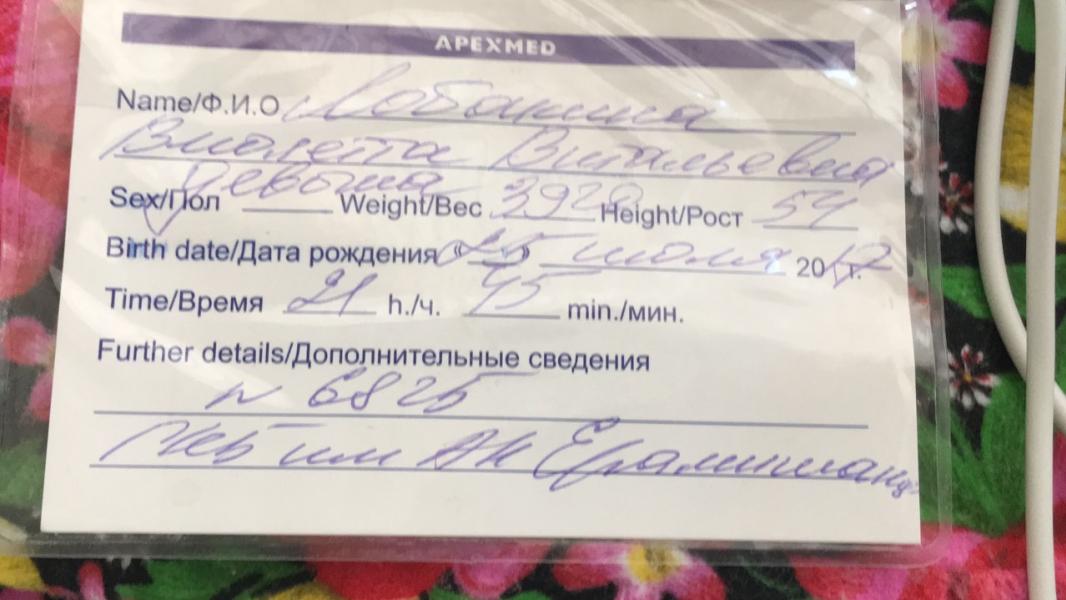 APEXMED
Name/Ф.И.О Лобанина
Виолетта Витальевна
Sex/Пол девочка Weight/Вес 3920 Height/Рост 54
Birth date/Дата рождения «25» июля 2017 г.
Time/Время 21 h./ч. 45 min./мин.
Further details/Дополнительные сведения
N 6825
им АК Ерамишанц